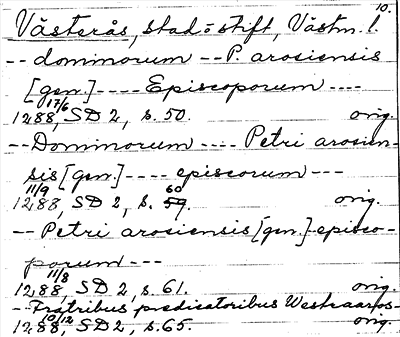 10.
Västerås, stad o stift, Västm. l.
-- dominorum -- P. arosiensis
[gen.] ---- Episcoporum ----
17/6
1288, SD 2, s. 50. orig.
-- Dominorum ---- Petri arosien-
sis [gen.] ---- episcorum ---
11/9 60
1288, SD 2, s. 59. orig.
-- Petri arosiensis [gen.] episco-
porum ---
11/8
1288, SD 2, s. 61. orig.
-- Fratribus predicatoribus Westraaros-
10/12
1288, SD2, s.65. orig.